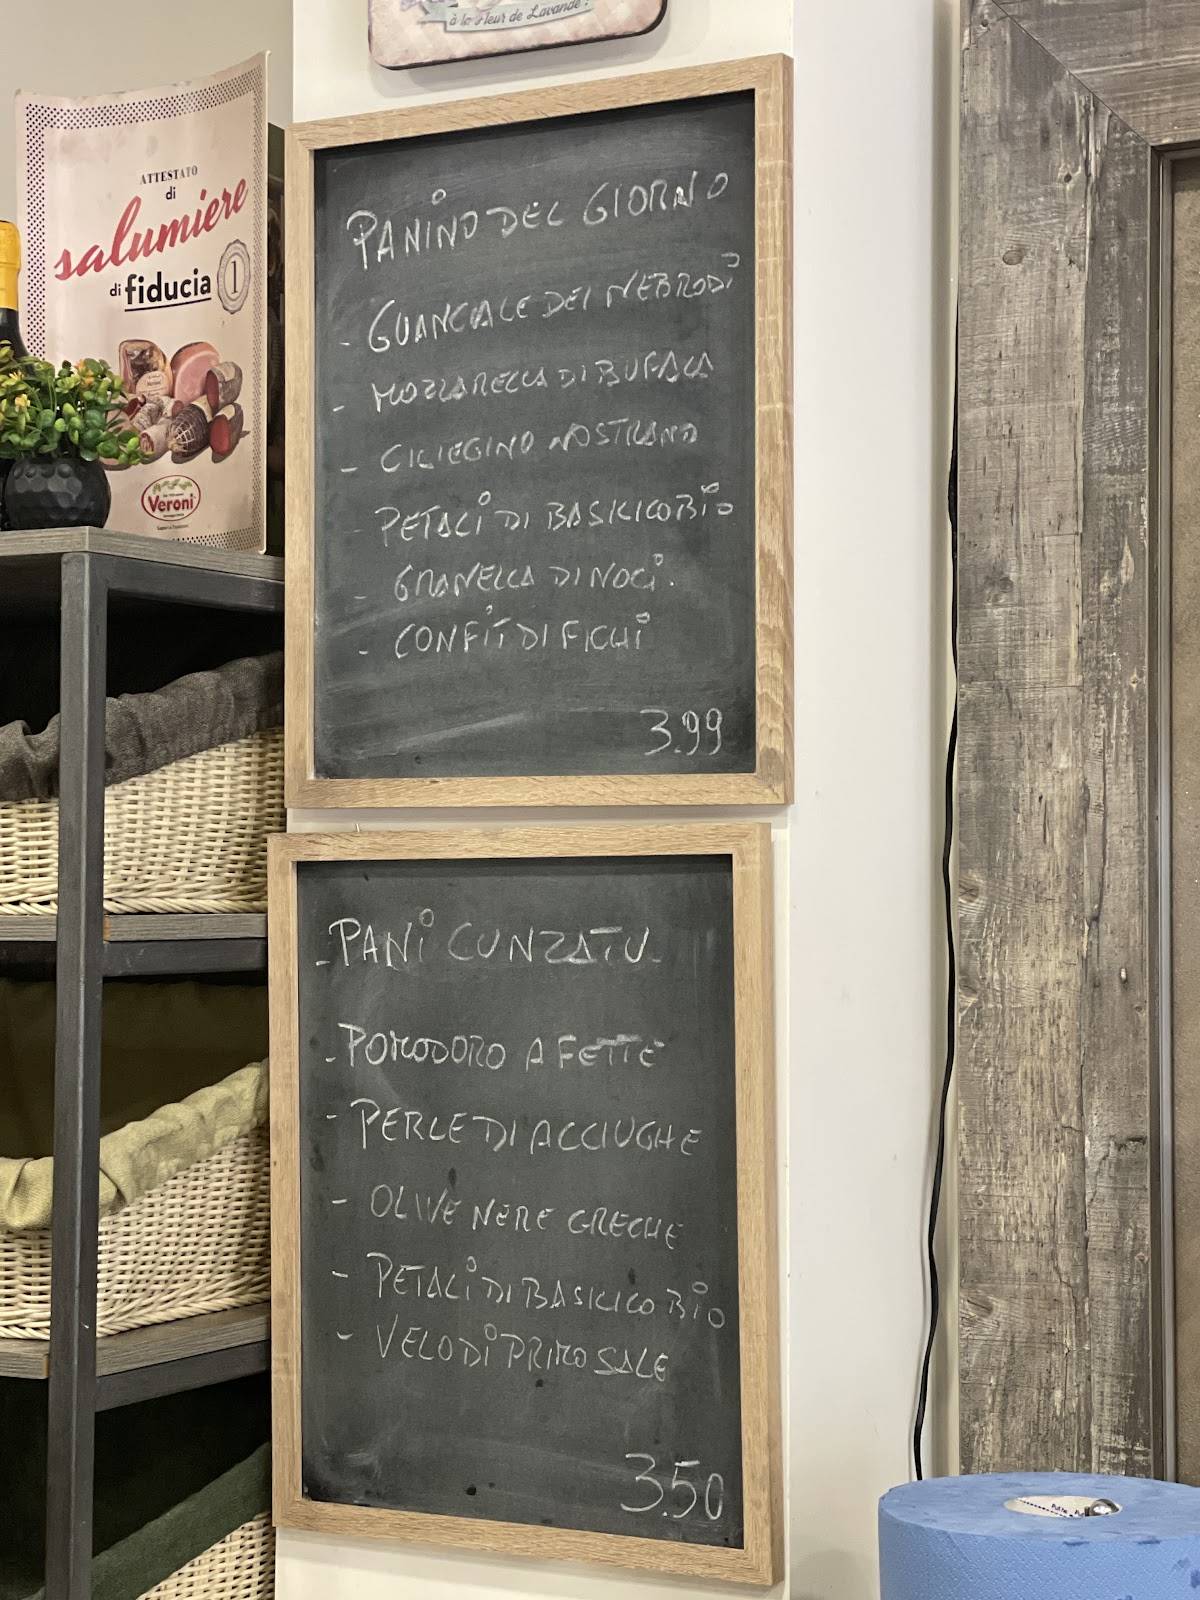 à la Fleur de Lavande!
ATTESTATO
di
salumiere
di fiducia
1
Veroni
PANINO DEL GIORNO
- GUANCIALE DEI NEBRODI
- MOZZARELLA DI BUFALA
- CILIEGINO NOSTRANO
- PETALI DI BASILICO BIO
- GRANELLA DI NOCI.
- CONFIT DI FICHI
3.99
- PANI CUNZATU -
- POMODORO A FETTE
- PERLE DI ACCIUGHE
- OLIVE NERE GRECHE
- PETALI DI BASILICO BIO
- VELO DI PRIMO SALE
3.50